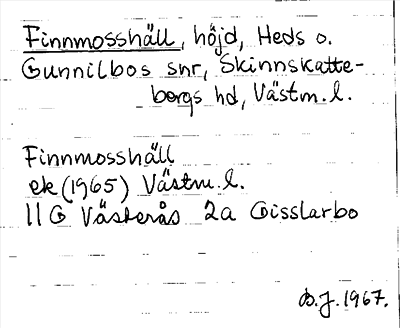 Finnmosshäll, höjd, Heds o.
Gunnilbos snr, Skinnskatte-
bergs hd, Västm. l.
Finnmosshäll
ek (1965) Västm. l.
11 G Västerås 2a Gisslarbo
B.J. 1967.